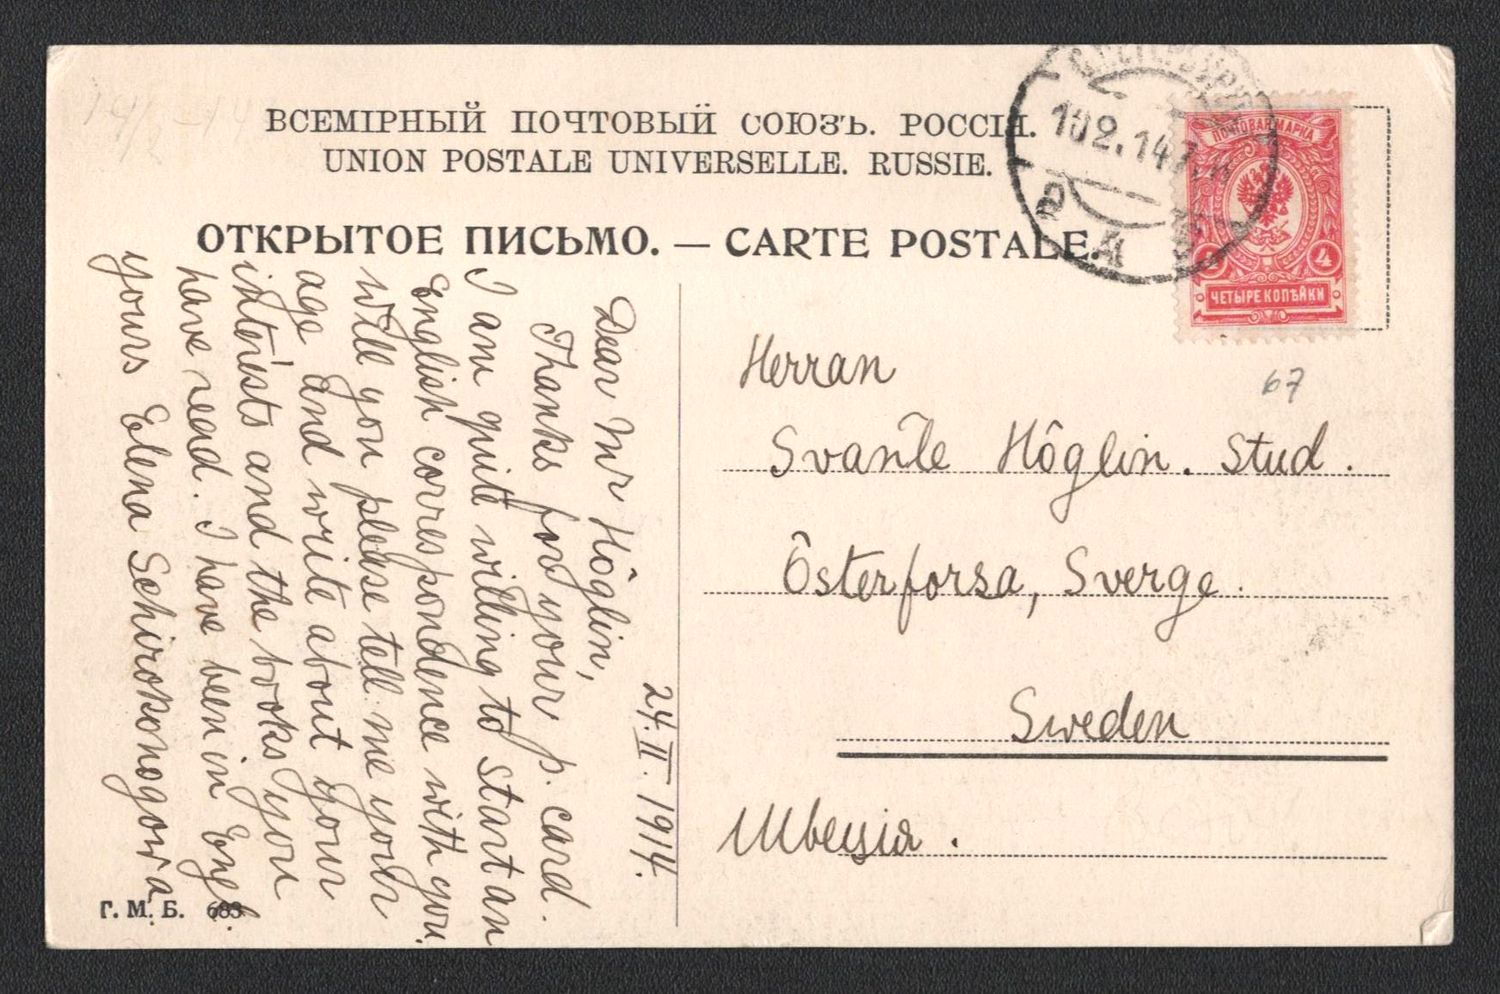 ВСЕМІРНЫЙ ПОЧТОВЫЙ СОЮЗЪ. РОССІЯ.
UNION POSTALE UNIVERSELLE. RUSSIE.
ОТКРЫТОЕ ПИСЬМО. — CARTE POSTALE.
10 2.14
ПОЧТОВАЯ МАРКА
4
ЧЕТЫРЕ КОПѢЙКИ
67
Herran
Svante Höglin. Stud.
Österforsa, Sverge.
Sweden
Швеція.
24.II.1914.
Dear Mr Höglin,
Thanks for your p. card.
I am quite willing to start an
English correspondence with you.
Will you please tell me your
age and write about your
intérests and the books you
have read. I have been in Engl.
Yours Elena Schirokonogowa.
Г. М. Б. 683